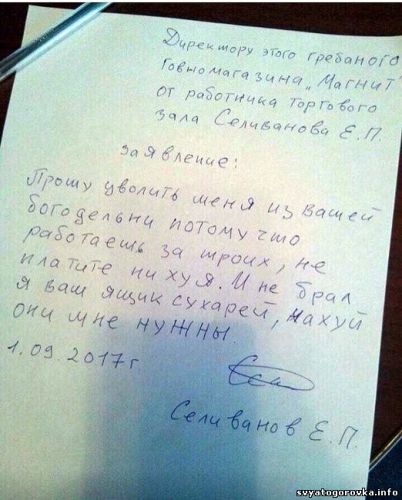 Директору этого гребаного
говномагазина „Магнит"
от работника торгового
зала Селиванова Е.П.
заявление:
Прошу уволить меня из вашей
богодельни потому что
работаешь за троих, не
платите нихуя. И не брал
я ваш ящик сухарей, нахуй
они мне нужны.
1.09.2017г
Селиванов Е.П.
svyatogorovka.info